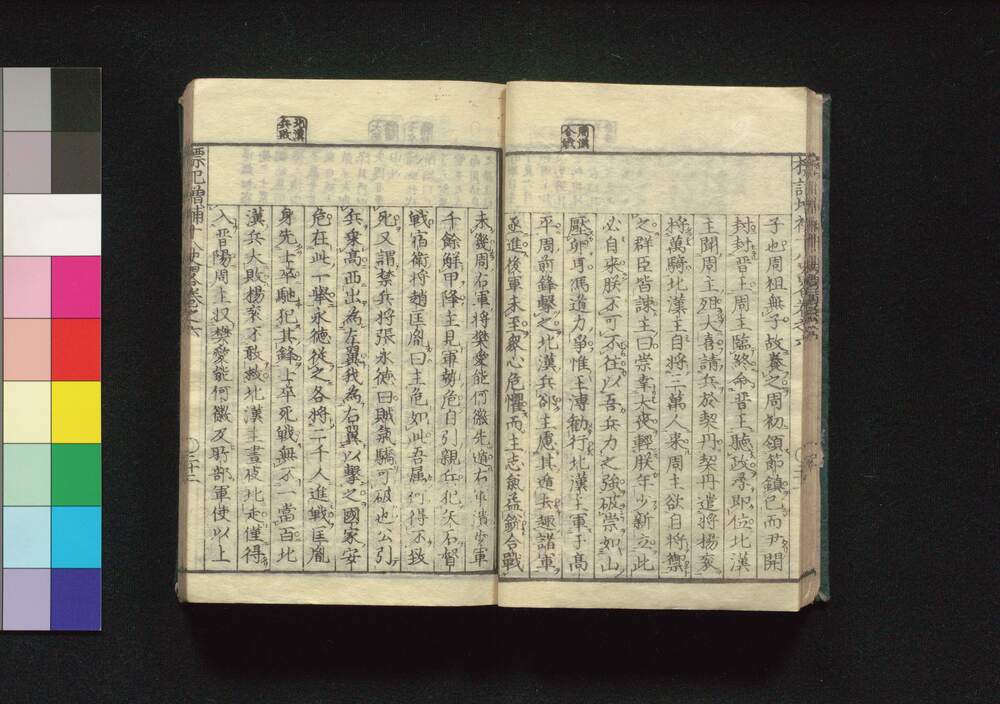 周漢
合戦
子也周祖無子故養之周初領節鎮已而尹開
封封晋王周主臨終命晋王聴政尋即位北漢
主聞周主殂大喜請兵於契丹契丹遣将揚袞
将萬騎北漢主自将三萬人来周主欲自将禦
之群臣皆諌主曰崇幸大喪輕朕年少新立此
必自来朕不可不往以吾兵力之強破崇如山
壓卵耳馮道力爭惟王溥勧行北漢主軍于高
平周前鋒擊之北漢兵卻主慮其遁去趣諸軍
亟進後軍未至衆心危懼而主志氣益鋭合戰
北漢
兵敗
未幾周右軍将樊愛能何徽先遁右軍潰歩軍
千餘解甲降主見軍勢危自引親兵犯矢石督
戰宿衛将趙匡胤曰主危如此吾屬何得不致
死又謂禁兵将張永徳曰賊氣驕可破也公引
兵乗高西出為左翼我為右翼以擊之國家安
危在此一舉永徳従之各将二千人進戰匡胤
身先士卒馳犯其鋒士卒死戰無不一當百北
漢兵大敗揚袞不敢救北漢主晝夜北走僅得
入晋陽周主收樊愛能何徽及所部軍使以上
標記増補十八史略巻之六